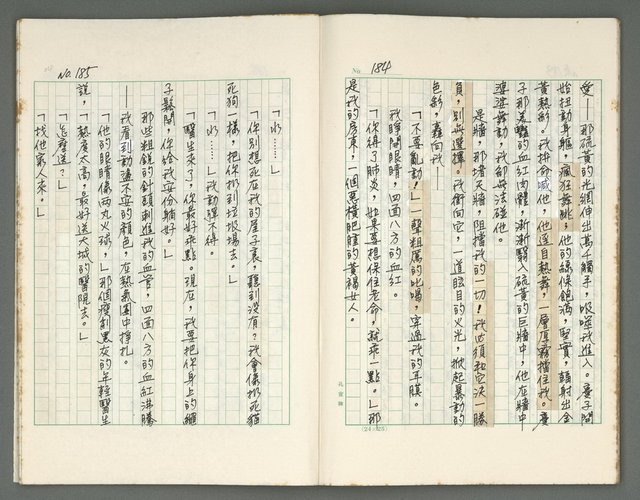 No. 184
愛——那硫黃的光網伸出萬千觸手，吸喚我進入。臺子開
始扭動身軀，瘋狂舞跳，他的線條飽滿，堅實，輻射出金
黃熱彩。我拼命喊他，他逕自熱舞，一層層霧擋住我。臺
子那美麗的血紅肉體，漸漸翳入硫黃的巨牆中，他在牆中
婆娑舞動，我卻無法碰他。
是牆，那堵天牆，阻擋我的一切！我必須和它決一勝
負，別無選擇。我衝向它，一道眩目的火光，掀起暴動的
色彩，轟向我——
「不要亂動！」一聲粗厲的叱喝，穿過我的耳膜。
我睜開眼睛，四面八方的血紅。
「你得了肺炎，如果要想保住老命，就乖一點。」那
是我的房東，一個惡橫肥腫的黃褐女人。
孔雀牌
(24×25)
No. 185
「水……」
「你別想死在我的屋子裏，聽到沒有？我會像扔死貓
死狗一樣，把你扔到垃圾場去。」
「水……」我動彈不得。
「醫生來了，你最好乖點。現在，我要把你身上的繩
子鬆開，你給我安份躺好。」
那些粗銳的針頭刺進我的血管，四面八方的血紅沸騰
——我看到動盪不安的顏色，在熱氣團中掙扎。
「他的眼睛像兩丸火球，」那個瘦削黑灰的年輕醫生
說，「熱度太高，最好送大城的醫院去。」
「怎麼送？」
「找他家人來。」